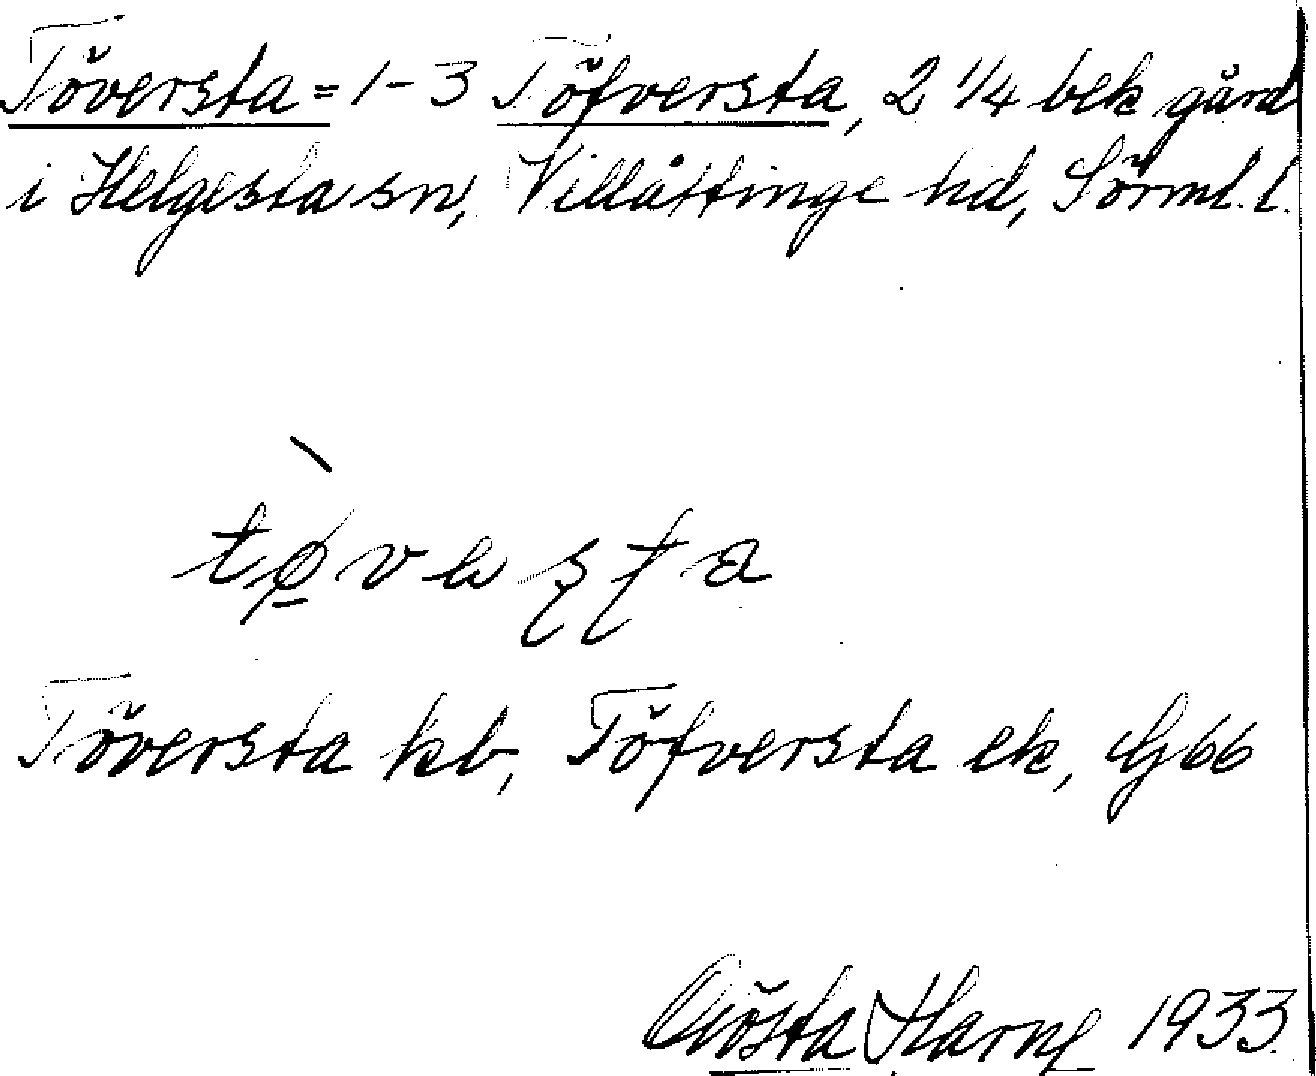 Töversta = 1-3 Töfversta, 2 1/4 bek gård
i Helgesta sn, Villåttinge hd, Sörml. l.
Töversta kb, Töfversta ek, G66
Gösta Harne 1933.